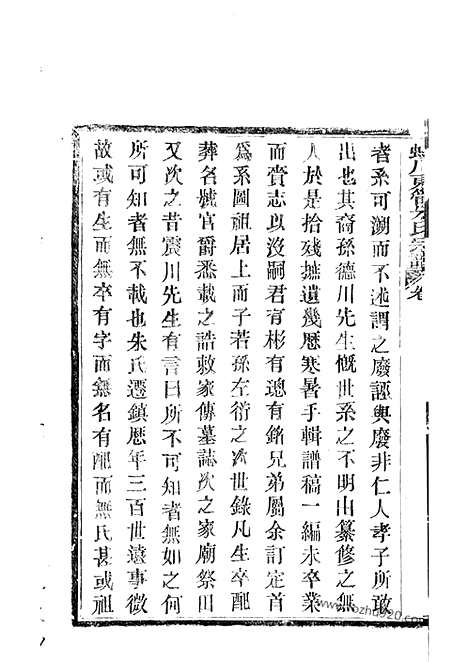 氏宗譜 卷
者系可溯而不述謂之廢誣與廢非仁人孝子所敢
出也其裔孫德川先生慨世系之不明由纂修之無
人於是拾殘摭遺幾歷寒暑手輯譜稿一編未卒業
而賫志以沒嗣君有彬有璁有銘兄弟屬余訂定首
爲系圖祖居上而子若孫左衍之次世錄凡生卒配
葬名壙官爵悉載之誥敕家傳墓誌次之家廟祭田
又次之昔震川先生有言曰所不可知者無如之何
所可知者無不載也朱氏遷鎮歷年三百世遠事微
故或有生而無卒有字而無名有配而無氏甚或祖